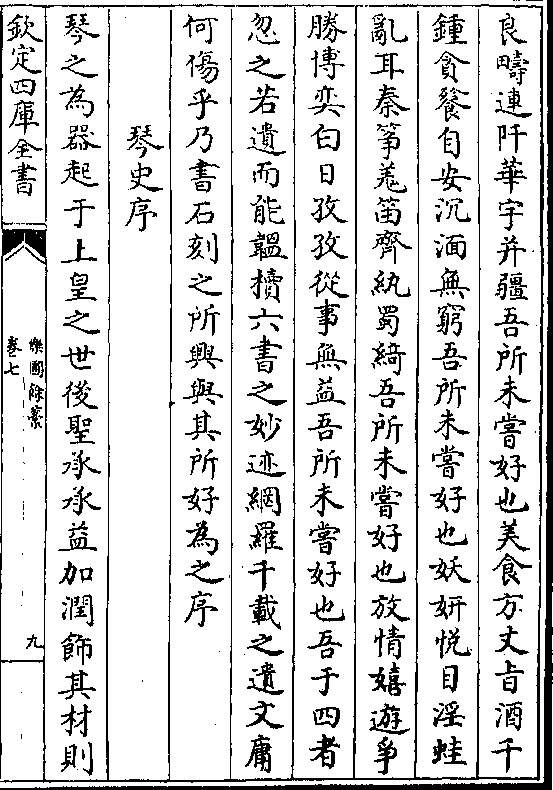 良疇連阡華宇并疆吾所未嘗好也美食方丈㫖酒千
鍾貪饕自安沉湎無窮吾所未嘗好也妖妍悅目淫蛙
亂耳秦箏羌笛齊紈蜀綺吾所未嘗好也放情嬉遊爭
勝博奕白日孜孜從事無益吾所未嘗好也吾于四者
忽之若遺而能韞櫝六書之妙迹網羅千載之遺文庸
何傷乎乃書石刻之所興與其所好為之序
琴史序
琴之為器起于上皇之世後聖承承益加潤飾其材則
欽定四庫全書
樂圃餘藁
卷七
九